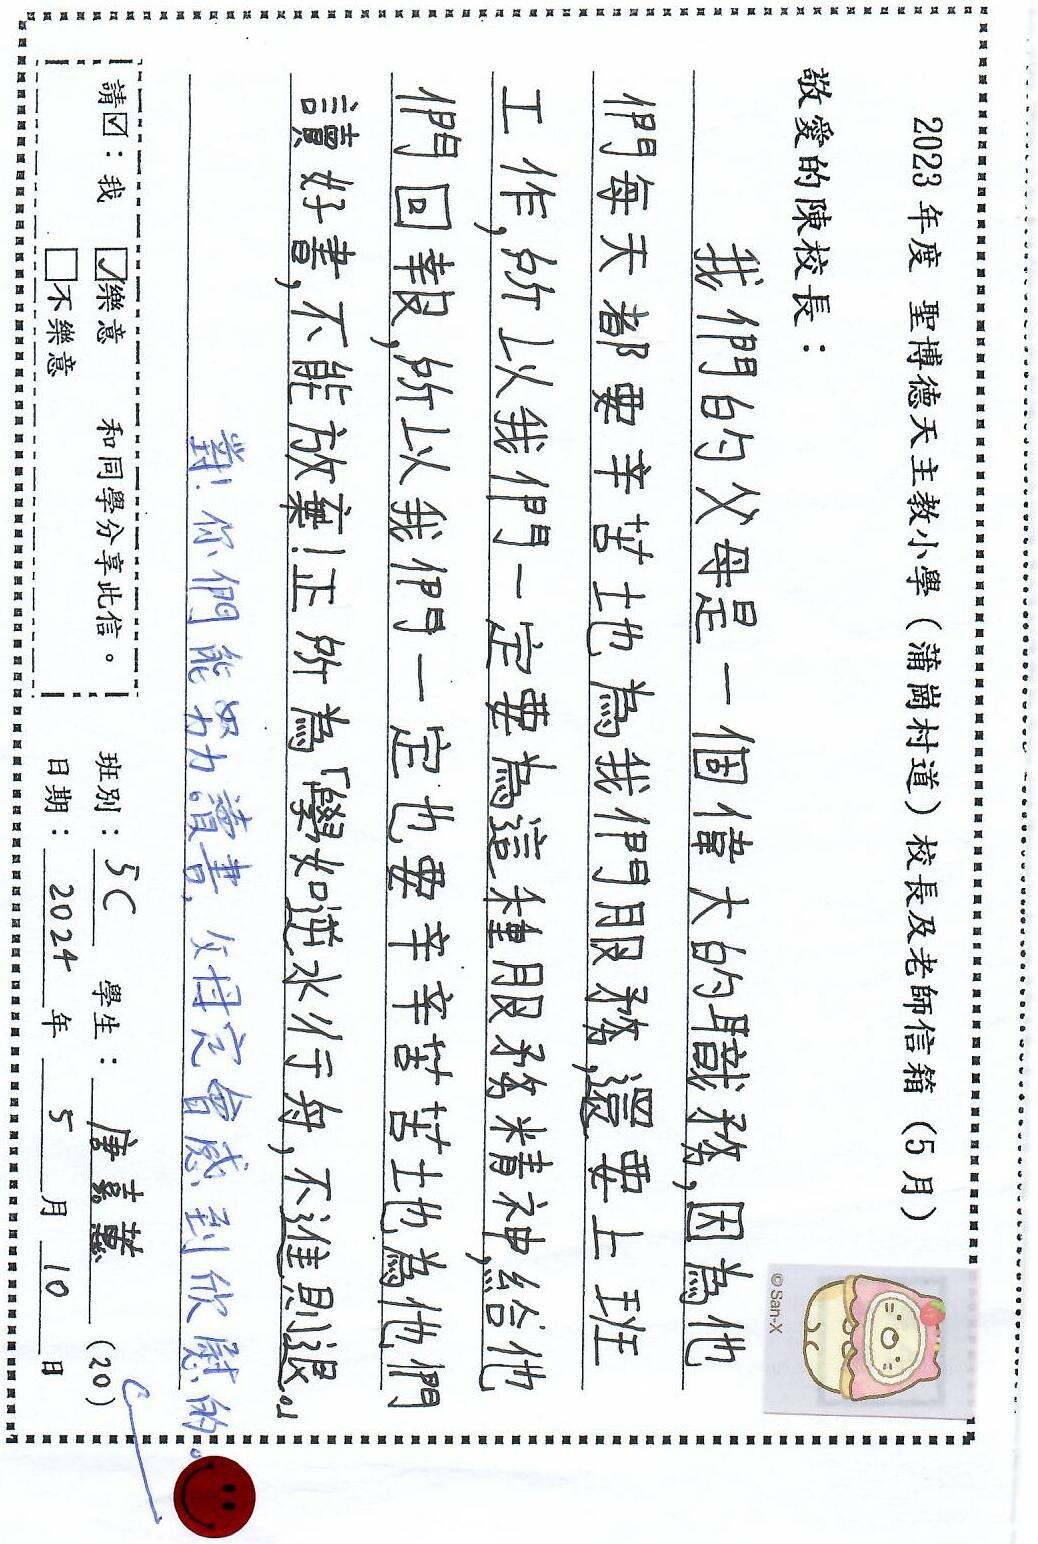 2023 年度 聖博德天主教小學（蒲崗村道）校長及老師信箱（5 月）
敬愛的陳校長：
我們的父母是一個偉大的職務,因為他
們每天都要辛苦地為我們服務,還要上班
工作,所以我們一定要為這種服務精神,給他
們回報,所以我們一定也要辛辛苦苦地為他們
讀好書,不能放棄!正所為「學如逆水行舟,不進則退。」
對! 你們能努力讀書, 父母定會感到欣慰的。
請☑：我 ☑樂意 和同學分享此信。
□不樂意
班別：5C 學生：唐嘉慧 (20)
日期：2024 年 5 月 10 日
© San-X